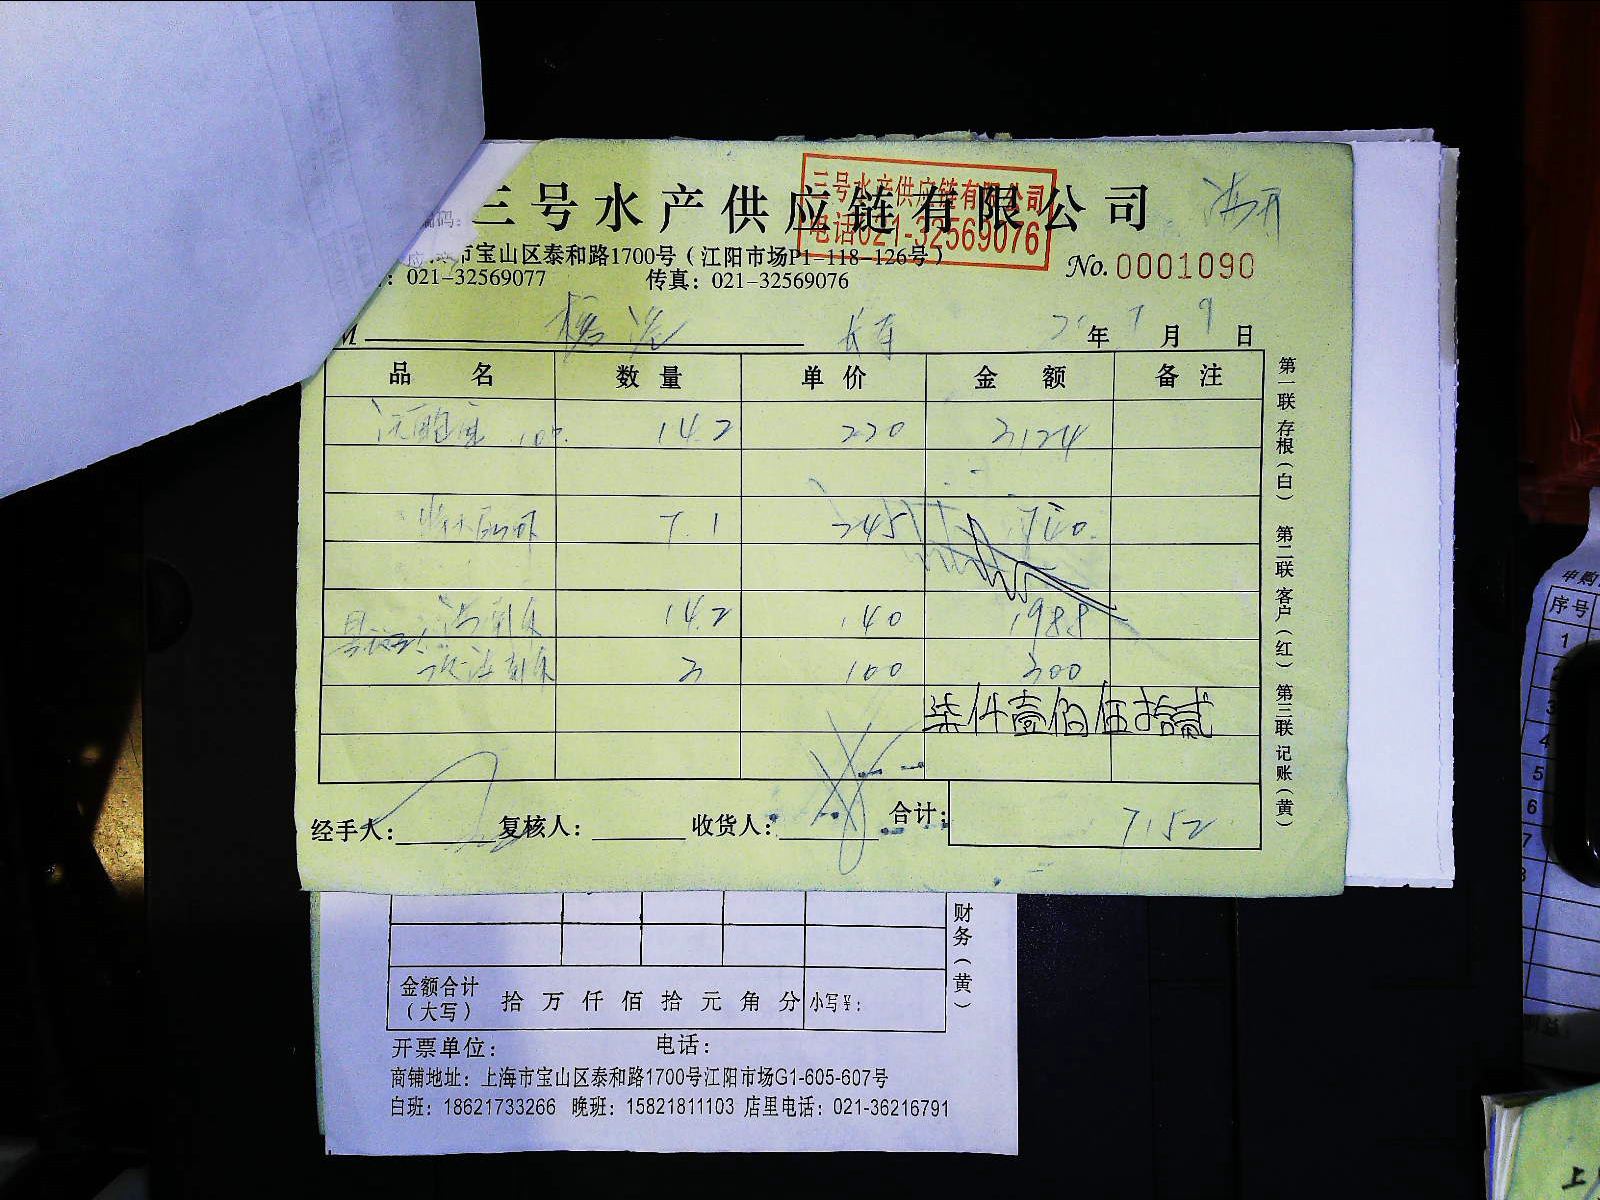 三号水产供应链有限公司
三号水产供应链有限公司
电话021-32569076
市宝山区泰和路1700号（江阳市场P1-118-126号）
：021-32569077 传真：021-32569076
No. 0001090
M 年 7 月 9 日
品名 数量 单价 金额 备注
14.2 220 3124
7.1 245 1740
14.2 140 1988
3 100 300
柒仟壹佰伍拾贰
经手人： 复核人： 收货人： 合计： 7152
第一联 存根（白） 第二联 客户（红） 第三联 记账（黄）
财务（黄）
金额合计（大写） 拾 万 仟 佰 拾 元 角 分 小写¥：
开票单位： 电话：
商铺地址：上海市宝山区泰和路1700号江阳市场G1-605-607号
白班：18621733266 晚班：15821811103 店里电话：021-36216791
申购
序号
1
2
3
4
5
6
7
8
上